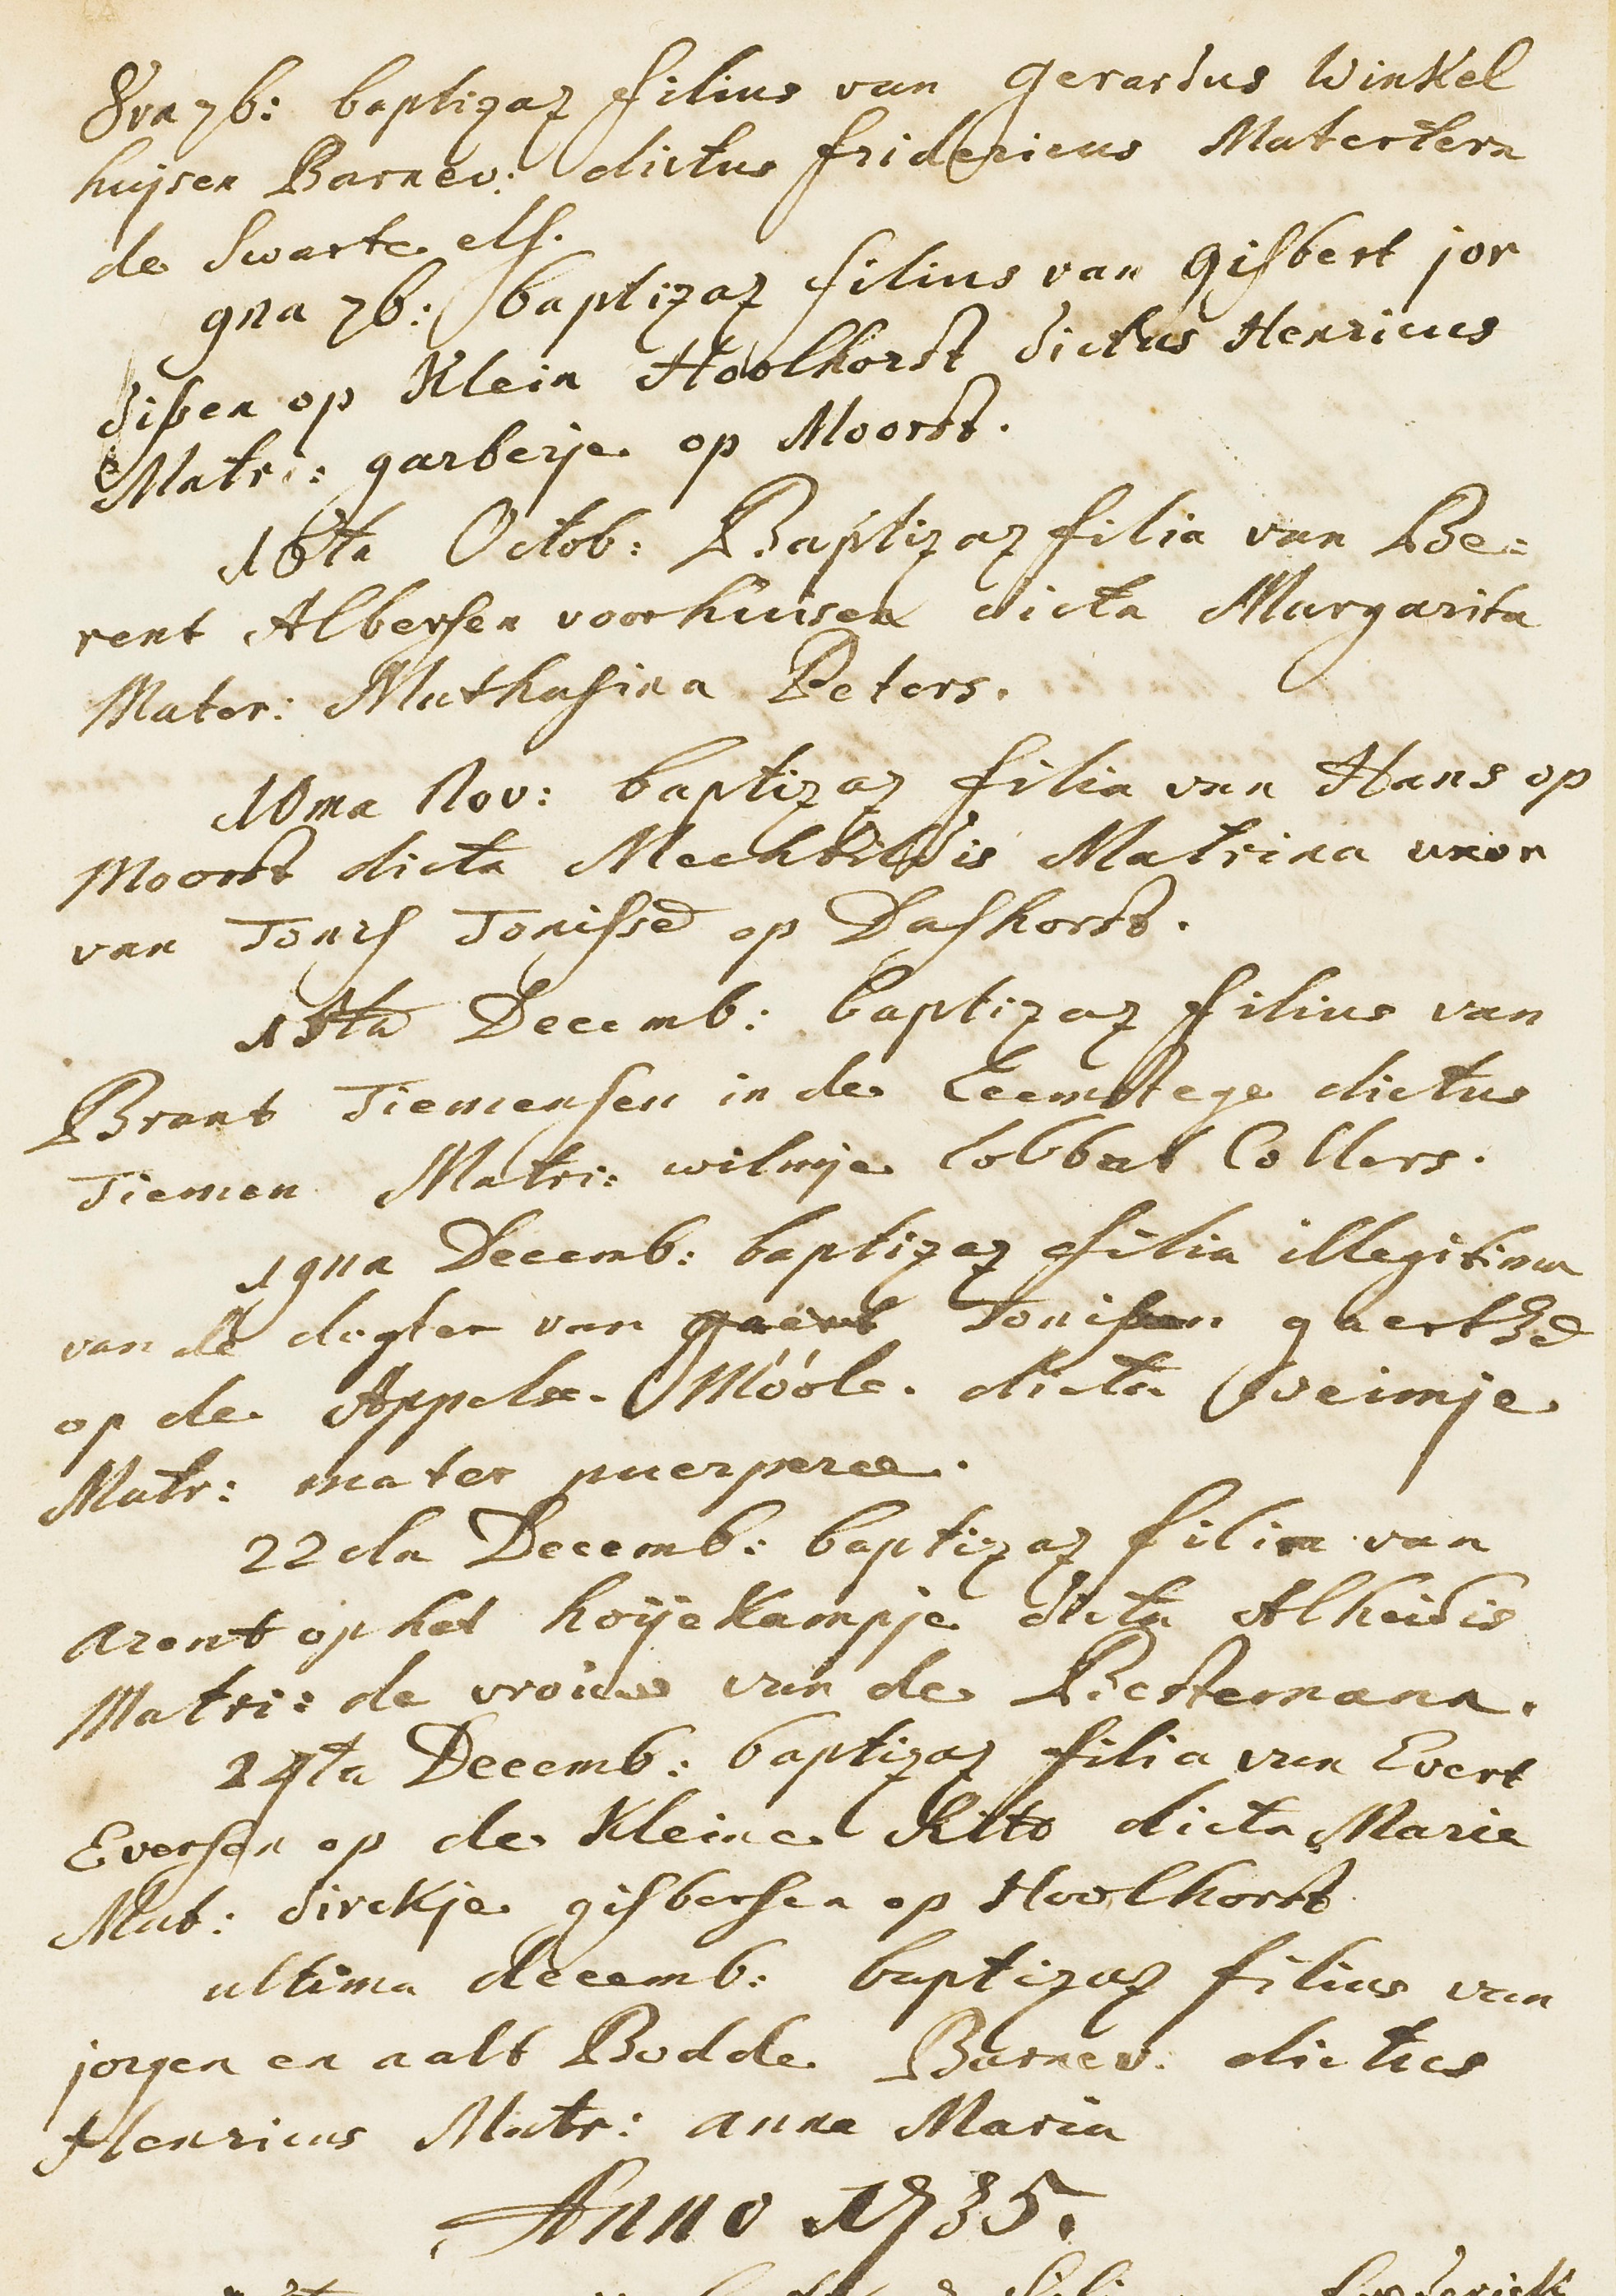 8va 7b: baptizaz filius van Gerardus Winkel
huijsen Barnev: dictus fridericus Matertera
de Swarte els.
9na 7b: baptizaz filius van Gisbert jor
dißen op Klein Hoolhorst dictus Henricus
Matri: garberje op Moorst.
16ta Octob: Baptizaz filia van Be=
rent Albersen voorhuisen dicta Margarita
Mater: Mathasina Peters.
10ma Nov: baptizaz filia van Hans op
Moorst dicta Mechtildis Matrina uxor
van Tonis Tonisse op Dashorst.
15ta Decemb: baptizaz filius van
Brant Tiemensen in de Leemstege dictus
Tiemen Matri: wilmje lobbert Collers.
19na Decemb: baptizaz filia illegitima
van de dogter van Tonißen gaertze
op de Appelse Móóle dicta Weimje
Matr: mater puerperae.
22da Decemb: baptizaz filia van
Arent op het hoijekampje dicta Alheidis
Matri: de vrouw van de Piestemann.
24ta Decemb: baptizaz filia van Evert
Eversen op de Kleine Kito dicta Marie
Mat: dirckje gisbersen op Hoolhorst
ultima decemb: baptizaz filius van
jorgen en aalt Bodde Barnev: dictus
Henricus Matr: anna Maria
Anno 1735.